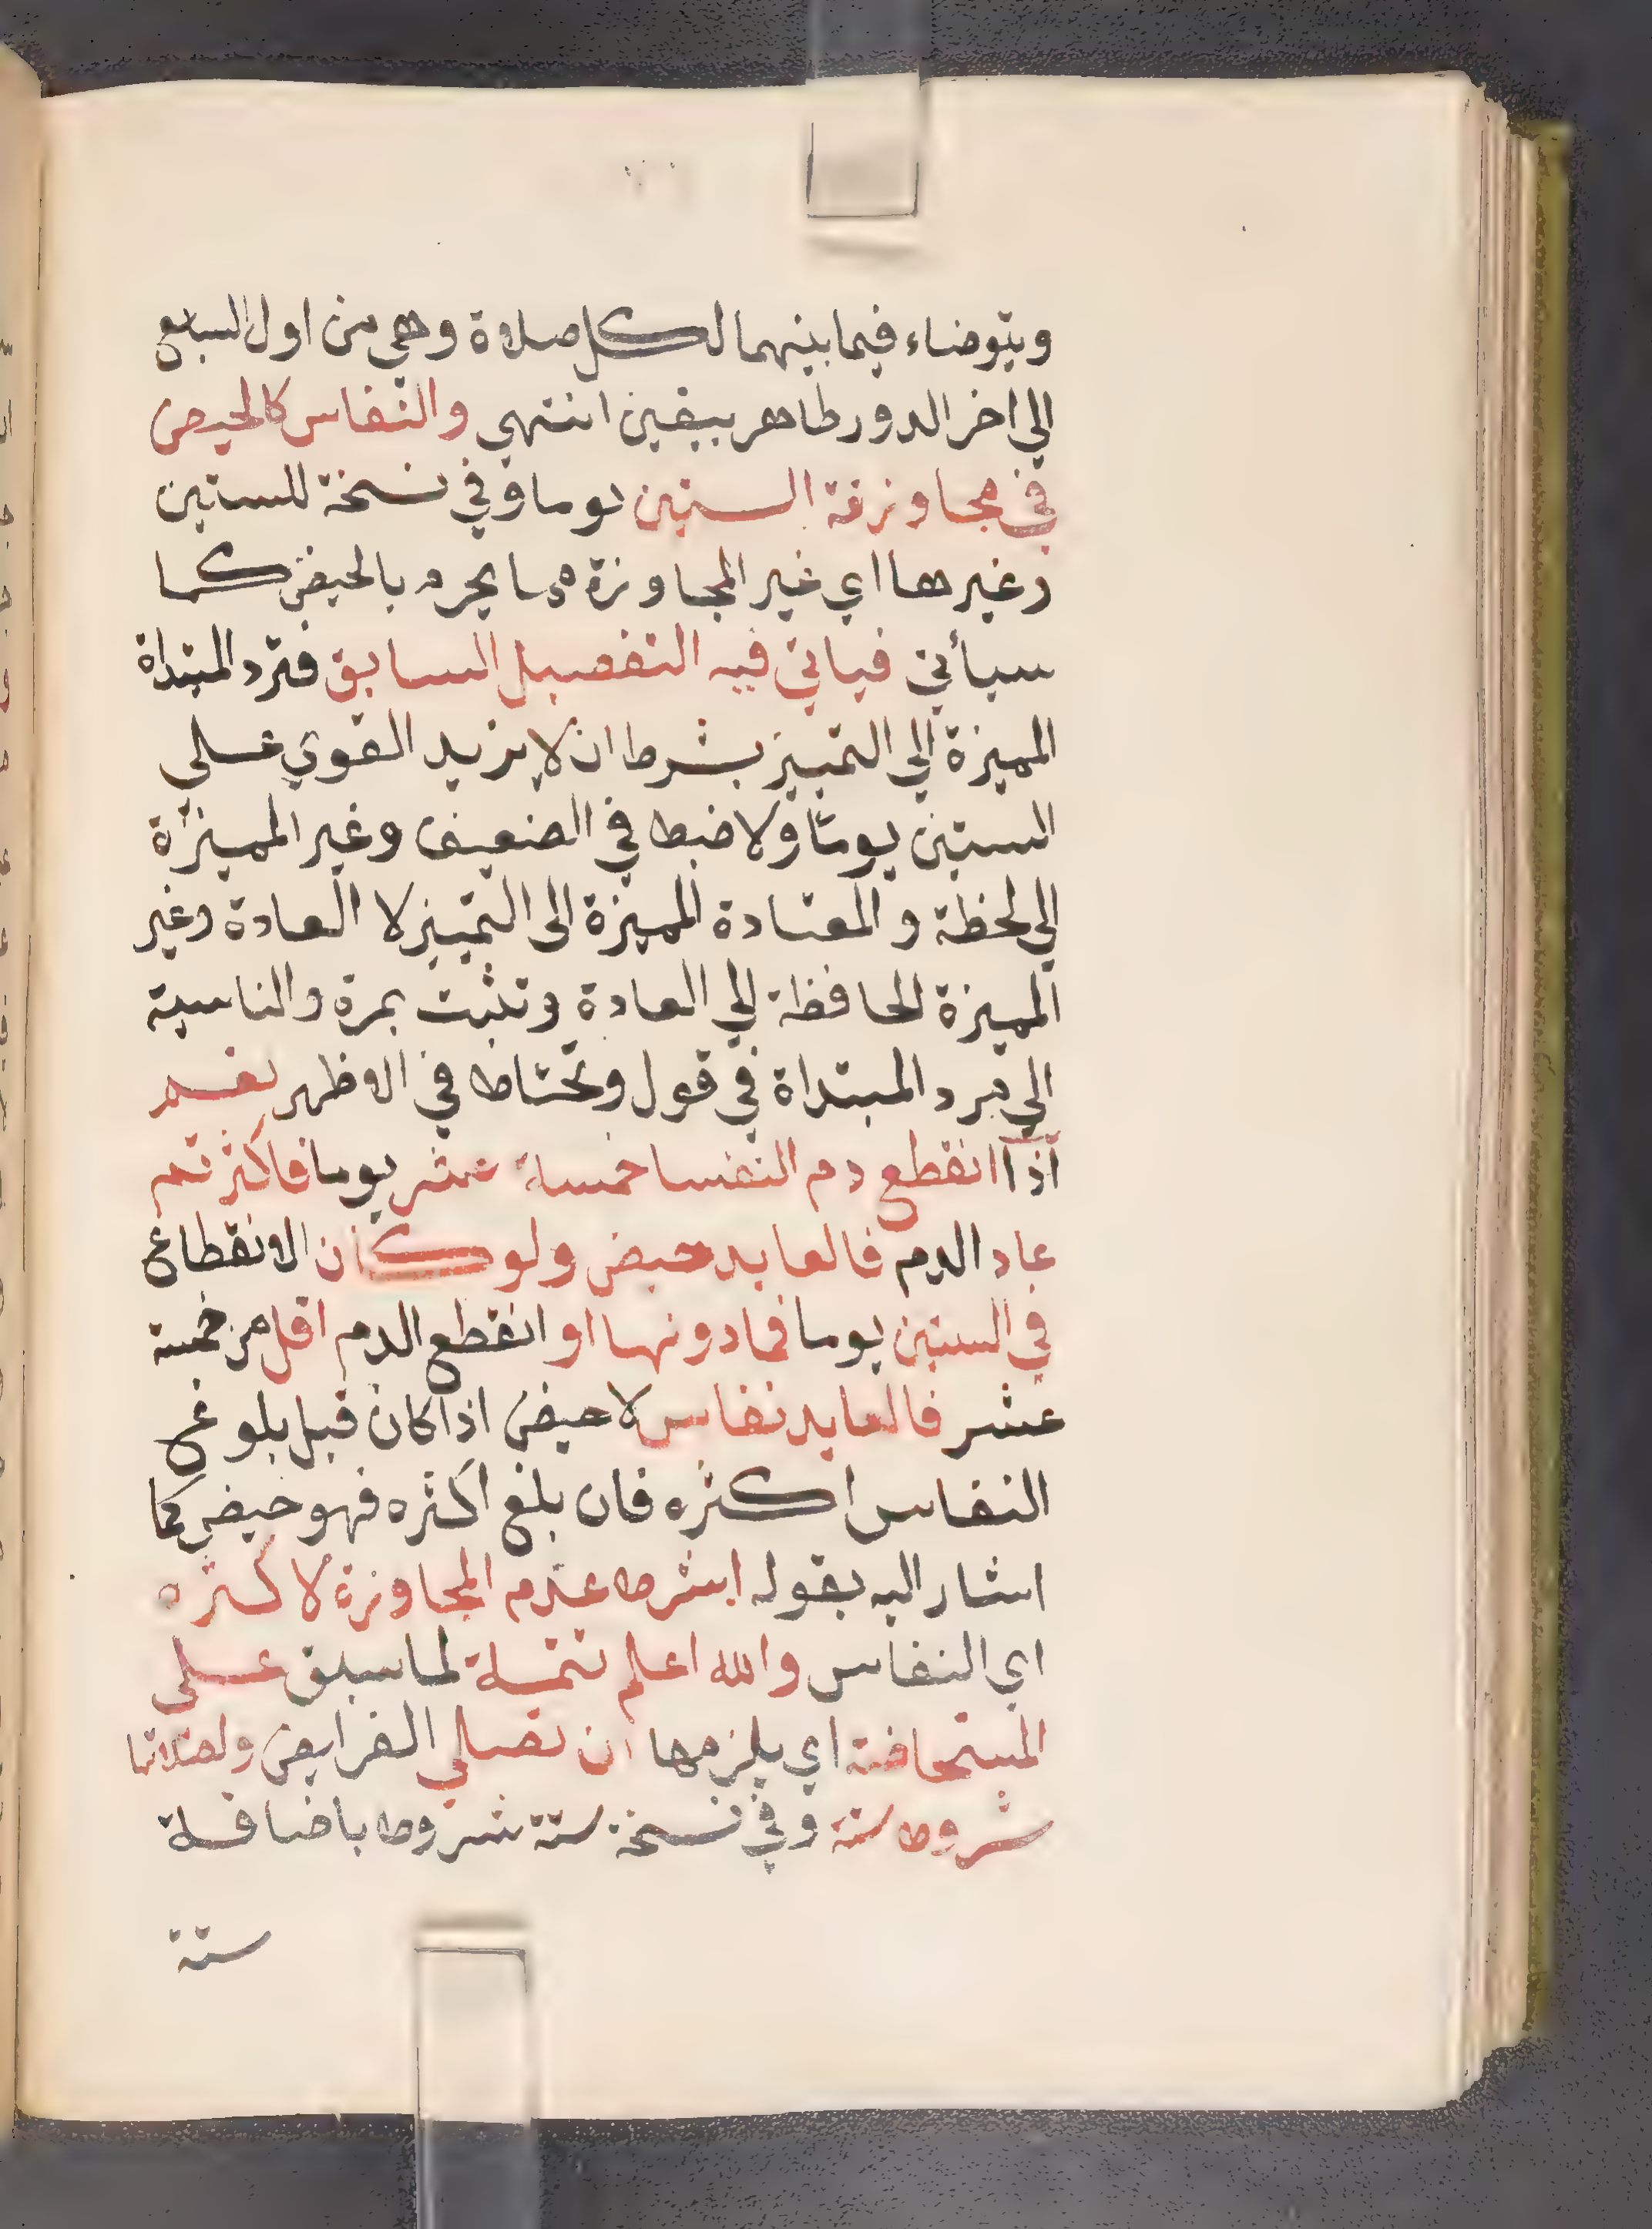 ويتوضاء فيما بينهما لكل صلاة وهي من اول السابع
الي اخر الدور طاهر بيقين انتهي والنفاس كالحيض
في مجاوزة الستين يوما وفي نسخة للستين
وغيرها اي غير المجاوزة مما يحرم بالحيض كما
سيأتي فياتي فيه التفصيل السابق فترد المبتداة
المميزة الي التمييز بشرط ان لا يزيد القوي على
الستين يوما ولا ضبط في الضعيف وغير المميزة
الي لحظة والمعتادة المميزة الى التمييز لا العادة وغير
المميزة الحافظة الي العادة وتثبت بمرة والناسية
الي مرد المبتداة في قول وتحتاط في الاظهر نعم
اذا انقطع دم النفسا خمسة عشر يوما فاكثر ثم
عاد الدم فالعايد حيض ولو كان الانقطاع
في الستين يوما فمادونها او انقطع الدم اقل من خمسة
عشر فالعايد نفاس لا حيض اذا كان قبل بلوغ
النفاس اكثره فان بلغ اكثره فهو حيض كما
اشار اليه بقوله بشرط عدم المجاوزة لاكثره
اي النفاس والله اعلم تتمة لما سبق على
المستحاضة اي يلزمها ان تصلي الفرايض ولصلاتها
شروط ستة وفي نسخة ستة شروط باضافة
ستة